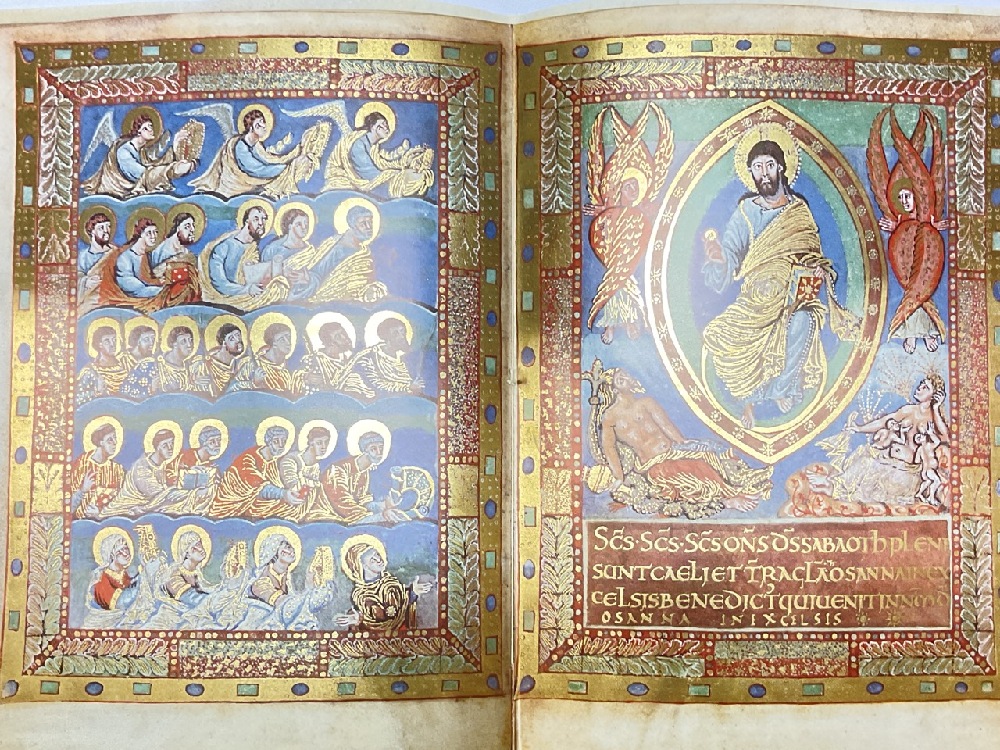 SC̄S·SC̄S·SC̄S DN̄S D̄S SABAOTH PLENI
SUNT CAELI ET TR̄A GLĀ OSANNA IN EX
CELSIS BENEDICT QUI UENIT IN NOM̄ D
OSANNA IN EXCELSIS